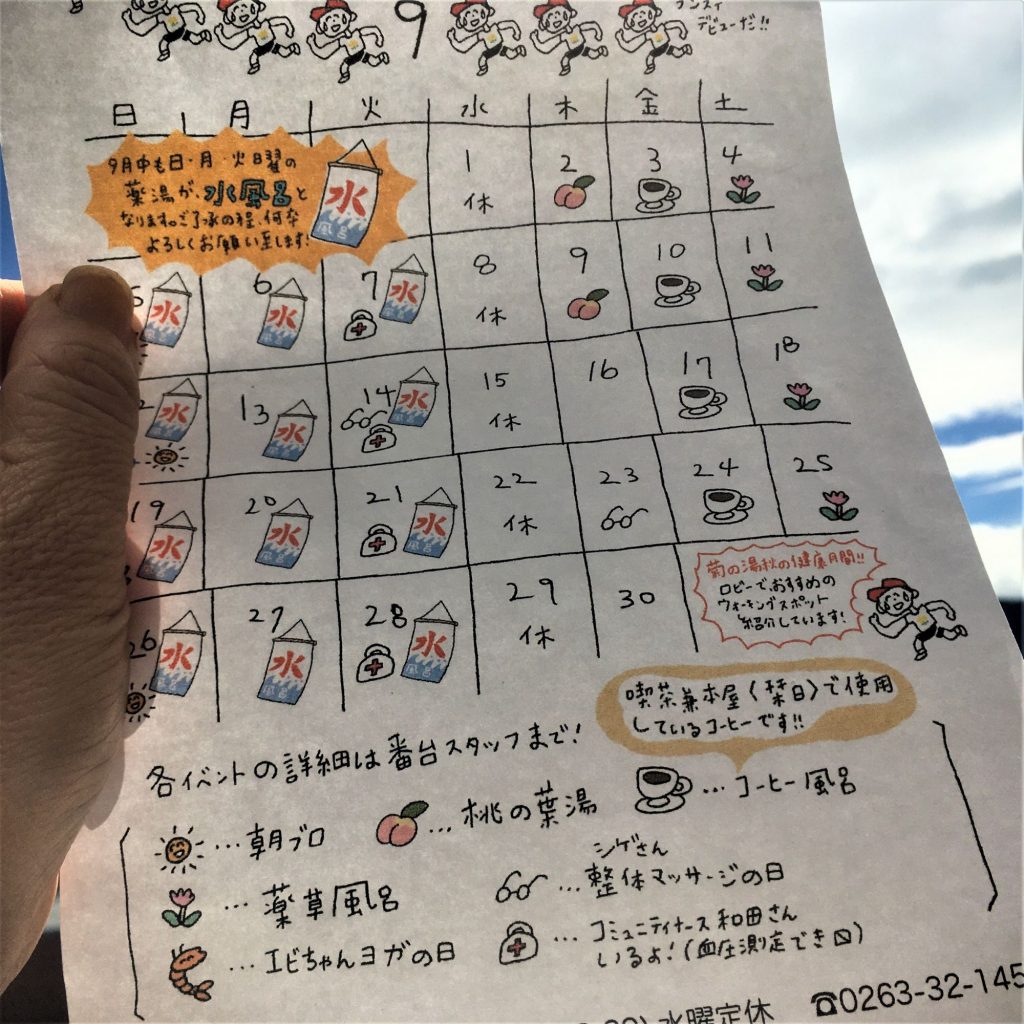 9
デビューだ!!
日 月 火 水 木 金 土
9月中も日・月・火曜の
薬湯が、水風呂と
なります。ご了承の程、何卒
よろしくお願い致します!
水
風呂
1 2 3 4
休
5 6 7 8 9 10 11
水 水 水 休
13 14 15 16 17 18
水 水 水 休
19 20 21 22 23 24 25
水 水 水 休
26 27 28 29 30
水 水 水 休
風呂
菊の湯秋の健康月間!!
ロビーで、おすすめの
ウォーキングスポット
紹介しています!
喫茶兼本屋〈栞日〉で使用
しているコーヒーです!!
各イベントの詳細は番台スタッフまで!
…朝ブロ …桃の葉湯 …コーヒー風呂
…薬草風呂 …シゲさん
整体マッサージの日
…エビちゃんヨガの日 …コミュニティナース和田さん
いるよ!(血圧測定でき〼)
水曜定休 ☎0263-32-145